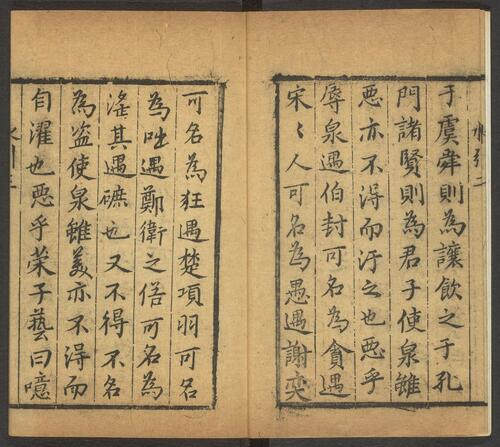 于虞舜則為讓飲之于孔
門諸賢則為君子使泉雖
惡亦不淂而汙之也惡乎
辱泉遇伯封可名為貪遇
宋〻人可名為愚遇謝奕
可名為狂遇楚項羽可名
為咄遇鄭衛之俗可名為
滛其遇礦也又不得不名
為盗使泉雖美亦不淂而
自濯也惡乎荣子藝曰噫